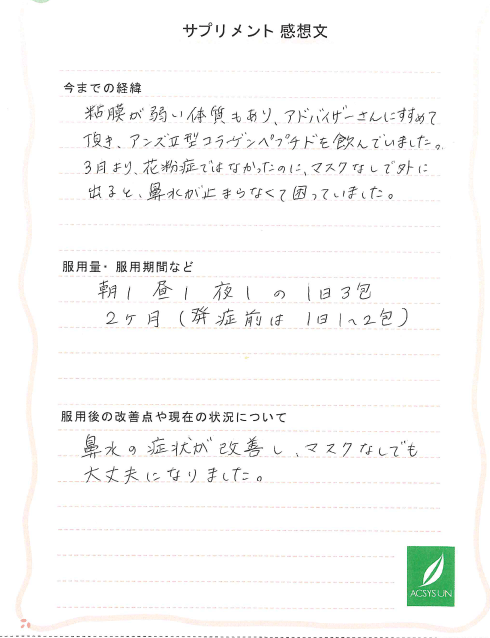 サプリメント 感想文
今までの経緯
粘膜が弱い体質もあり、アドバイザーさんにすすめて
頂き、アンズⅡ型コラーゲンペプチドを飲んでいました。
3月より、花粉症ではなかったのに、マスクなしで外に
出ると、鼻水が止まらなくて困っていました。
服用量・服用期間など
朝1 昼1 夜1 の 1日3包
2ヶ月(発症前は 1日1~2包)
服用後の改善点や現在の状況について
鼻水の症状が改善し、マスクなしでも
大丈夫になりました。
ACSYSUN